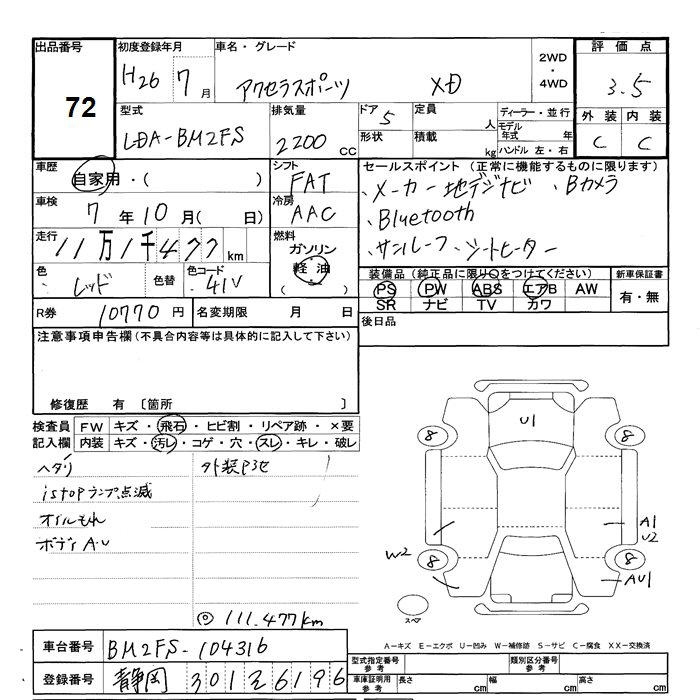 出品番号
72
初度登録年月
H26 7月
車名・グレード
アクセラスポーツ XD
2WD・4WD
評価点
3.5
外装 内装
C C
型式
LDA-BM2FS
排気量
2200 CC
ドア 5
形状
定員 人
積載 kg
ディーラー・並行
モデル年式 年
ハンドル 左・右
車歴
自家用・( )
シフト
FAT
車検
7年10月( 日)
冷房
AAC
走行
11万1千477km
燃料
ガソリン
軽油
( )
色
レッド
色替
色コード
41V
R券
10770円
名変期限 月 日
セールスポイント (正常に機能するものに限ります)
、メーカー地デジナビ 、Bカメラ
、Bluetooth
、サンルーフ 、シートヒーター
装備品 (純正品に限り○をつけてください)
新車保証書
PS PW ABS エアB AW
有・無
SR ナビ TV カワ
後日品
注意事項申告欄 (不具合内容等は具体的に記入して下さい)
修復歴 有 〔箇所 〕
検査員記入欄
FW キズ・飛石・ヒビ割・リペア跡・×要
内装 キズ・汚レ・コゲ・穴・スレ・キレ・破レ
ヘタリ
外装P3セ
istopランプ点滅
オイルもれ
ボディA.U
◎ 111.477km
U1
8 8
8 8
A1
U2
W2
AU1
スペア
A-キズ E-エクボ U-凹み W-補修跡 S-サビ C-腐食 XX-交換済
車台番号
BM2FS-104316
登録番号
静岡 301 ま 6196
型式指定番号 参考
類別区分番号 参考
車庫証明用 参考
長さ cm
幅 cm
高さ cm